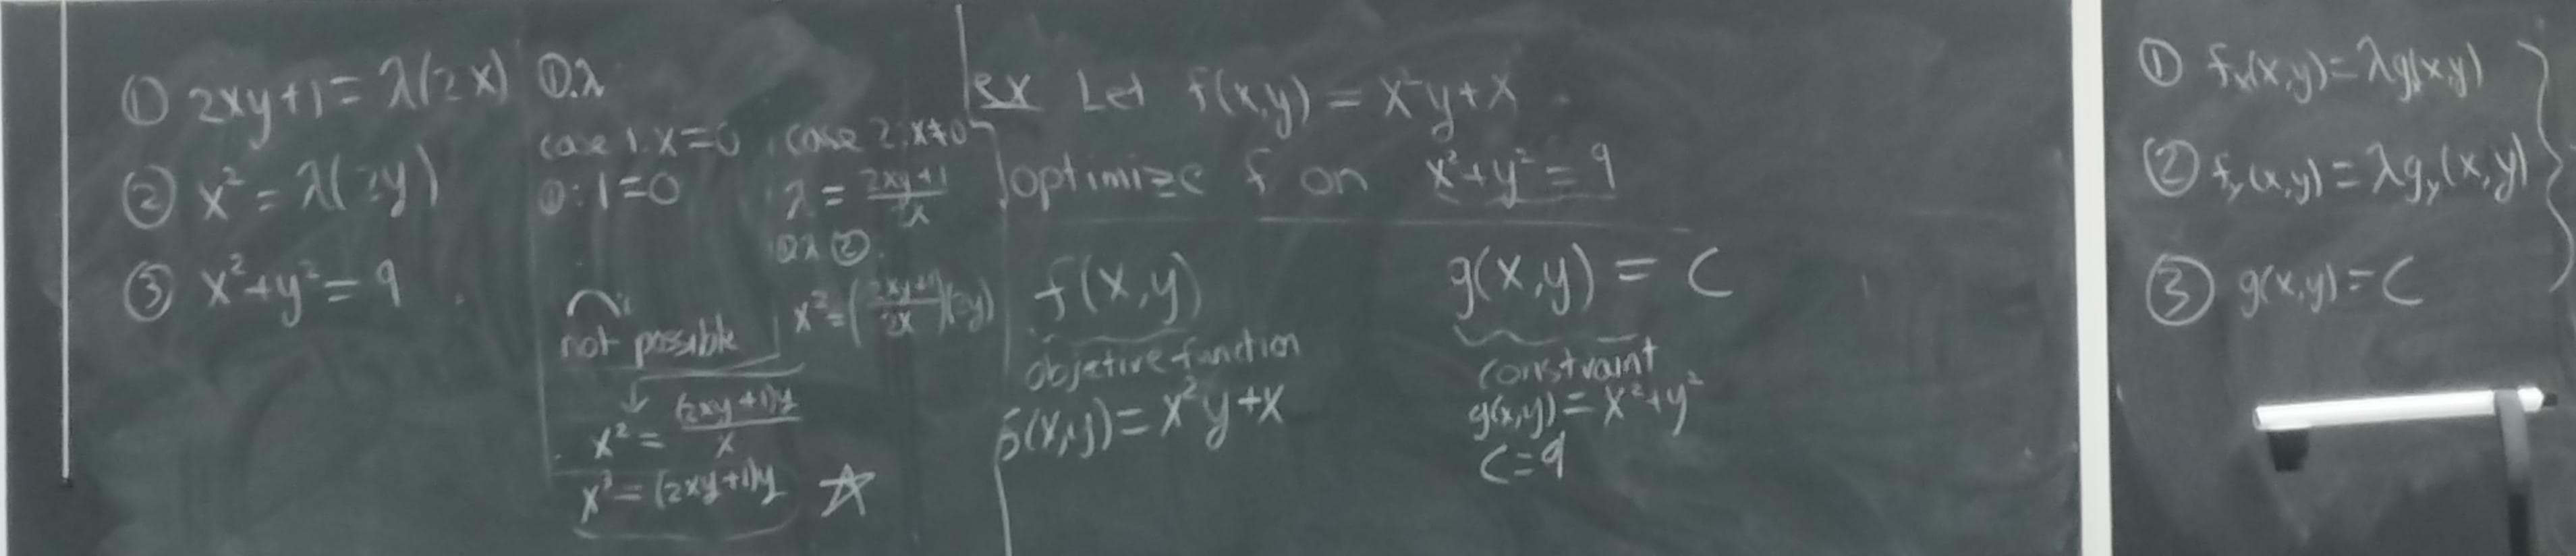 ① 2xy+1=λ(2x)
② x²=λ(2y)
③ x²+y²=9
①.λ
case 1: x=0
①: 1=0
not possible
case 2: x≠0
λ=\frac{2xy+1}{2x}
①λ ②.
x²=(\frac{2xy+1}{2x})(2y)
x²=\frac{(2xy+1)y}{x}
x³=(2xy+1)y ☆
ex Let f(x,y)=x²y+x
optimize f on x²+y²=9
f(x,y)
objetive function
f(x,y)=x²y+x
g(x,y)=C
constraint
g(x,y)=x²+y²
C=9
① fₓ(x,y)=λgₓ(x,y)
② f_y(x,y)=λg_y(x,y)
③ g(x,y)=C